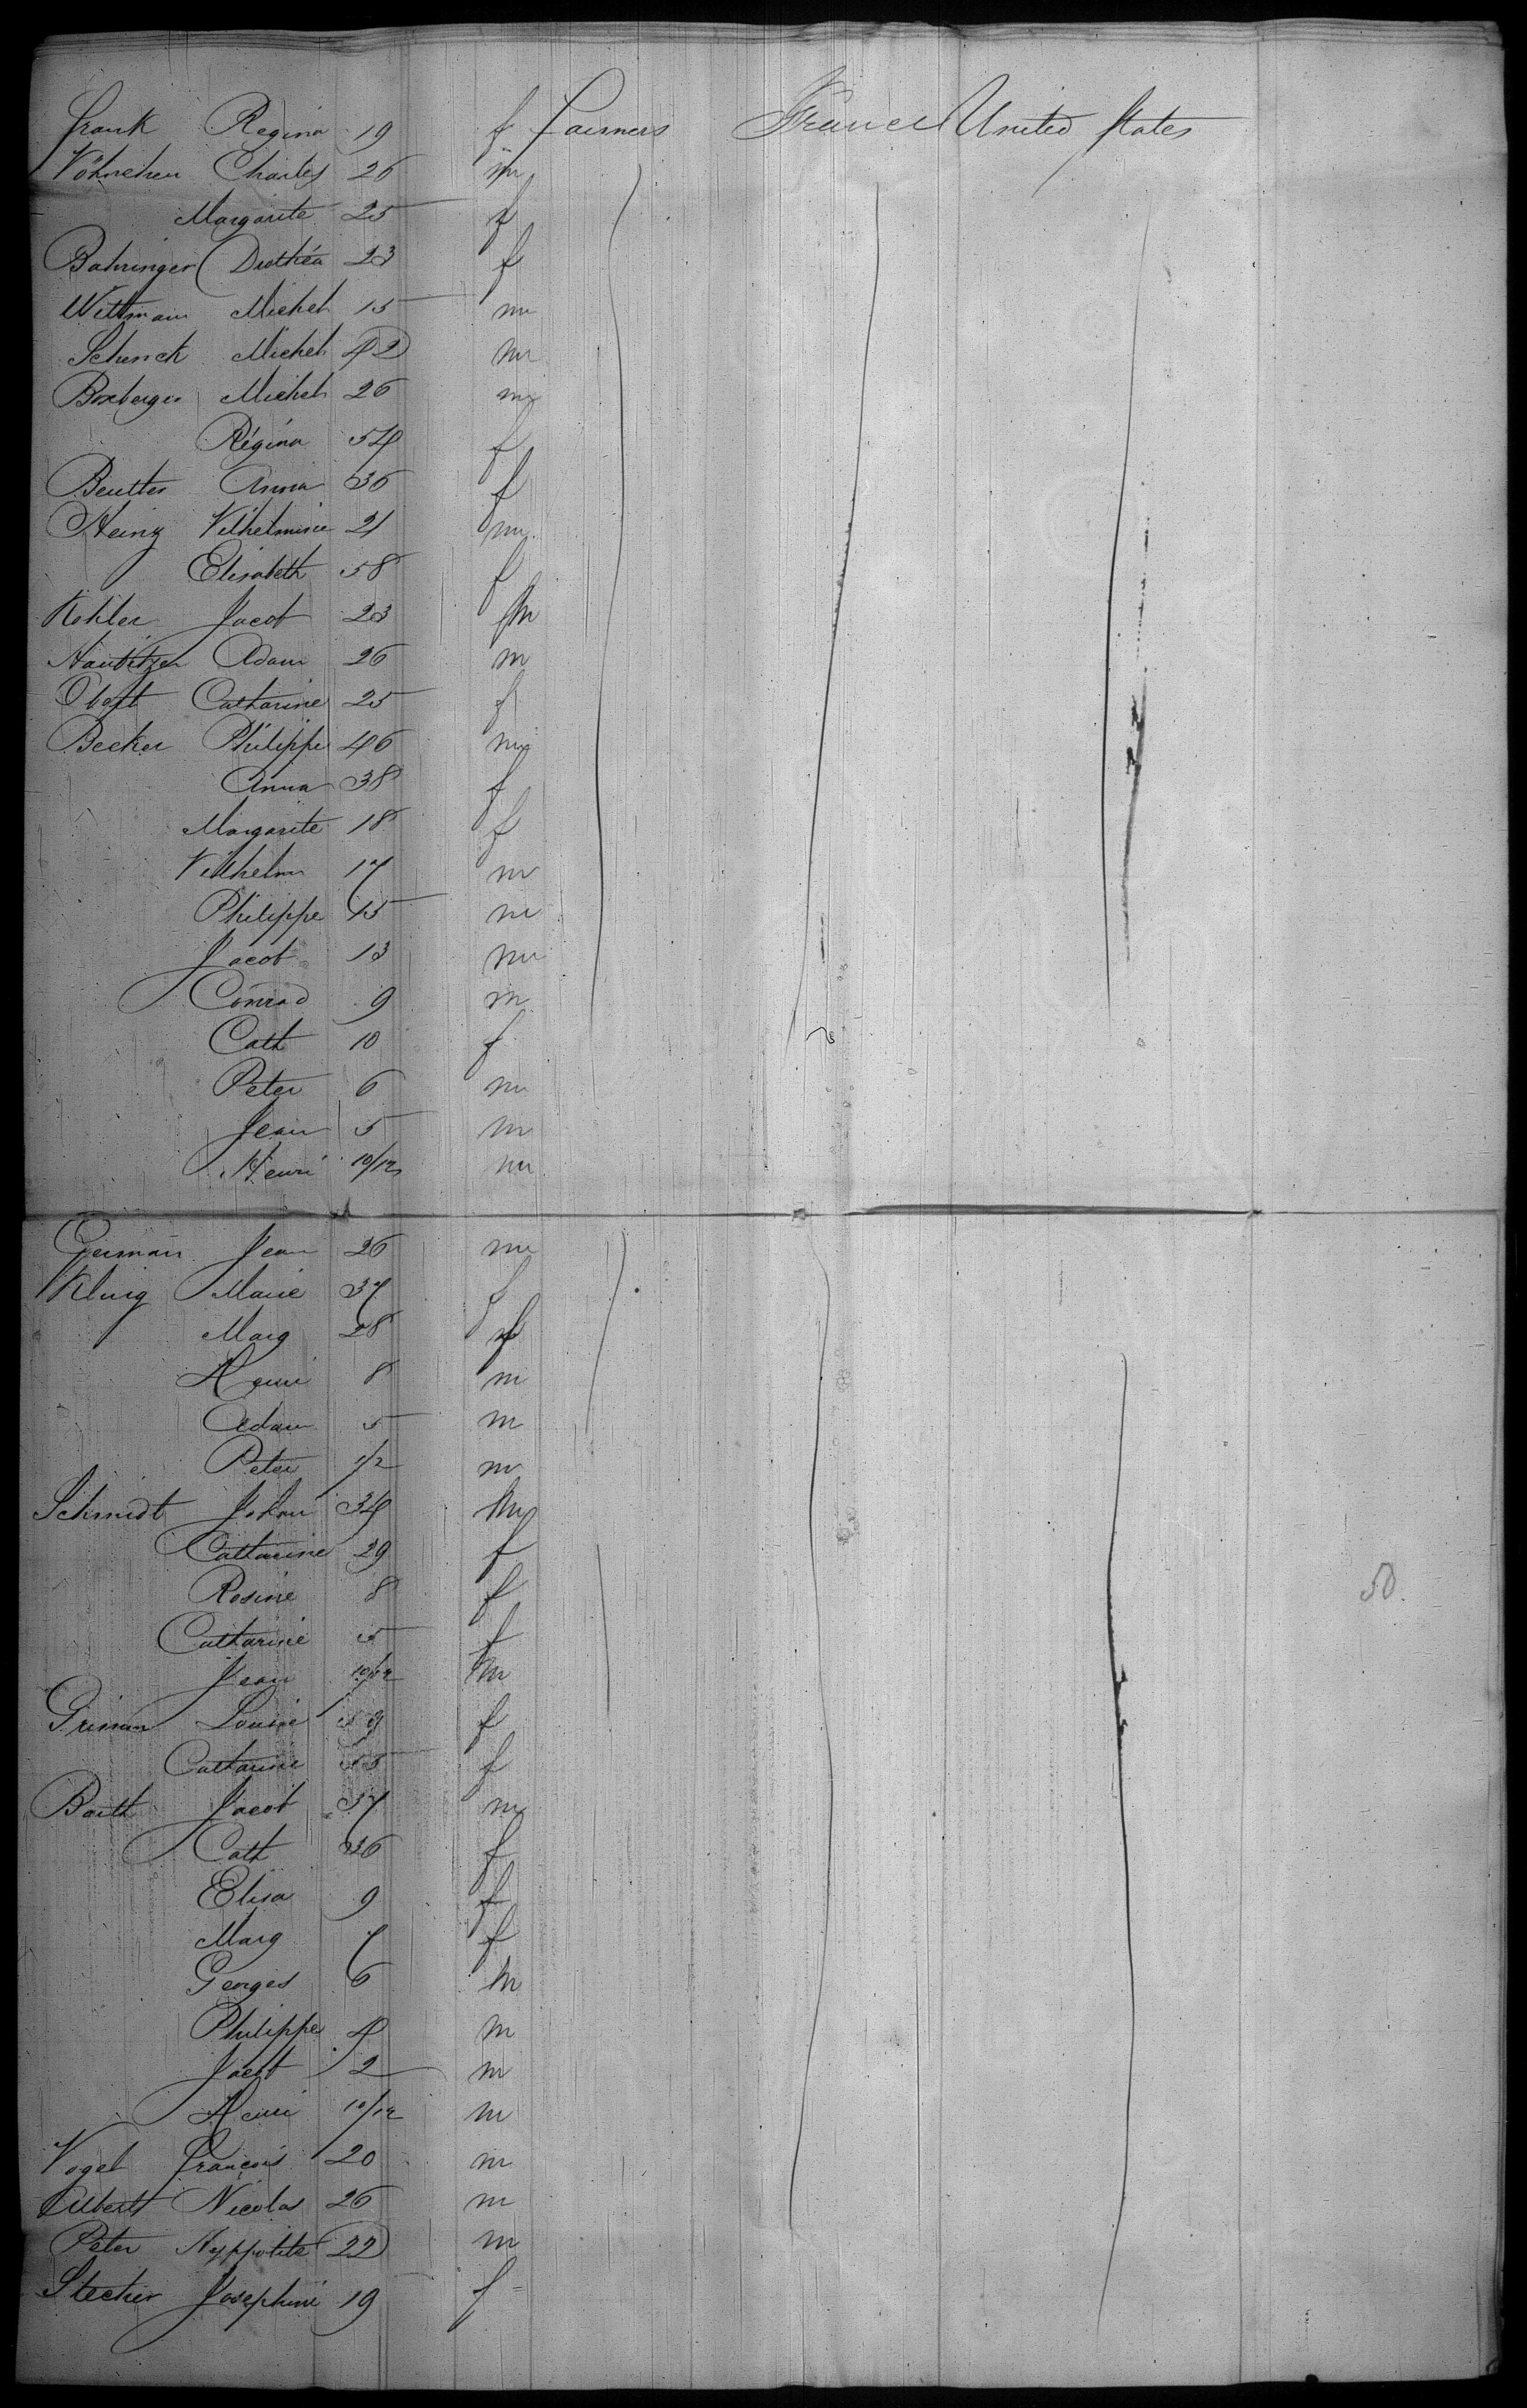 Frank Regina 19 f Farmers France United States
Charles 26 m
Margarite 25 f
Bahringer Drothéa 23 f
Wittmann Michel 15 m
Schenck Michel 42 m
Boxberger Michel 26 m
Régina 54 f
Beutter Anna 36 f
Heinz Vilhelmine 21 m
Elisabeth 58 f
Kohler Jacob 23 m
Adam 26 m
Catharine 25 f
Becker Philippe 46 m
Anna 38 f
Margarite 18 f
Vilhelm 17 m
Philippe 15 m
Jacob 13 m
Conrad 9 m
Cath 10 f
Peter 6 m
Jean 5 m
Henri 10/12 m
German Jean 26 m
Klung Marie 37 f
Marg 28 f
Henri 8 m
Adam 5 m
Peter 1/2 m
Schmidt Johan 34 m
Catharine 29 f
Rosine 8 f
50.
Catharine 5 f
Jean 10/12 m
Grimm Louise f
Catharine f
Barth Jacob 37 m
Cath 36 f
Elisa 9 f
Marg 7 f
Georges 6 m
Philippe 4 m
Jacob 2 m
Henri 10/12 m
Vogel François 20 m
Nicolas 26 m
Peter Hyppolite 22 m
Stecker Josephine 19 f